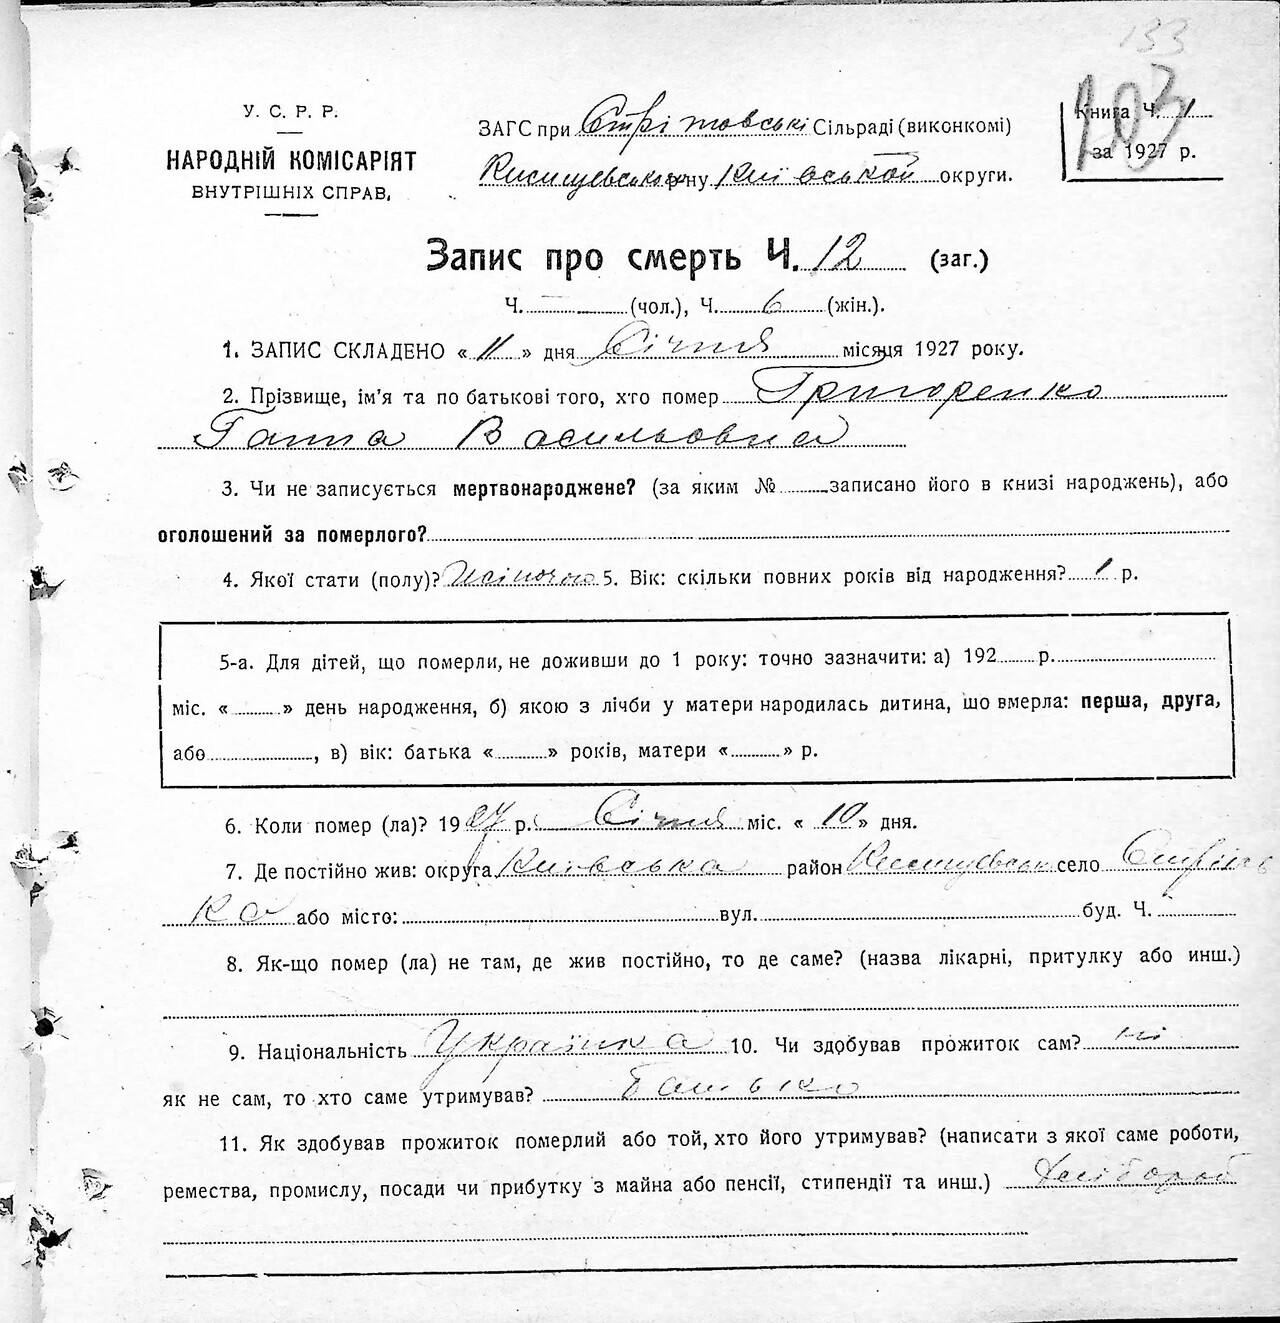 133
203
У. С. Р. Р.
НАРОДНІЙ КОМІСАРІЯТ
ВНУТРІШНІХ СПРАВ,
ЗАГС при Стрітовські Сільраді (виконкомі)
р-ну Київській округи.
Книга Ч. 1
за 1927 р.
Запис про смерть Ч. 12 (заг.)
Ч. — (чол.), Ч. 6 (жін.).
1. ЗАПИС СКЛАДЕНО « 11 » дня Січня місяця 1927 року.
2. Прізвище, ім'я та по батькові того, хто помер Григоренко
Ганна Васильовна
3. Чи не записується мертвонароджене? (за яким № записано його в книзі народжень), або
оголошений за померлого?
4. Якої стати (полу)? Жіночої 5. Вік: скільки повних років від народження? 1 р.
5-а. Для дітей, що померли, не доживши до 1 року: точно зазначити: а) 192 р.
міс. « » день народження, б) якою з лічби у матери народилась дитина, шо вмерла: перша, друга,
або , в) вік: батька « » років, матери « » р.
6. Коли помер (ла)? 1927 р. Січня міс. « 10 » дня.
7. Де постійно жив: округа Київська район село Стрітів
ка або місто: вул. буд. Ч.
8. Як-що помер (ла) не там, де жив постійно, то де саме? (назва лікарні, притулку або инш.)
9. Національність Українка 10. Чи здобував прожиток сам? ні
як не сам, то хто саме утримував? батько
11. Як здобував прожиток померлий або той, хто його утримував? (написати з якої саме роботи,
ремества, промислу, посади чи прибутку з майна або пенсії, стипендії та инш.) хлібороб